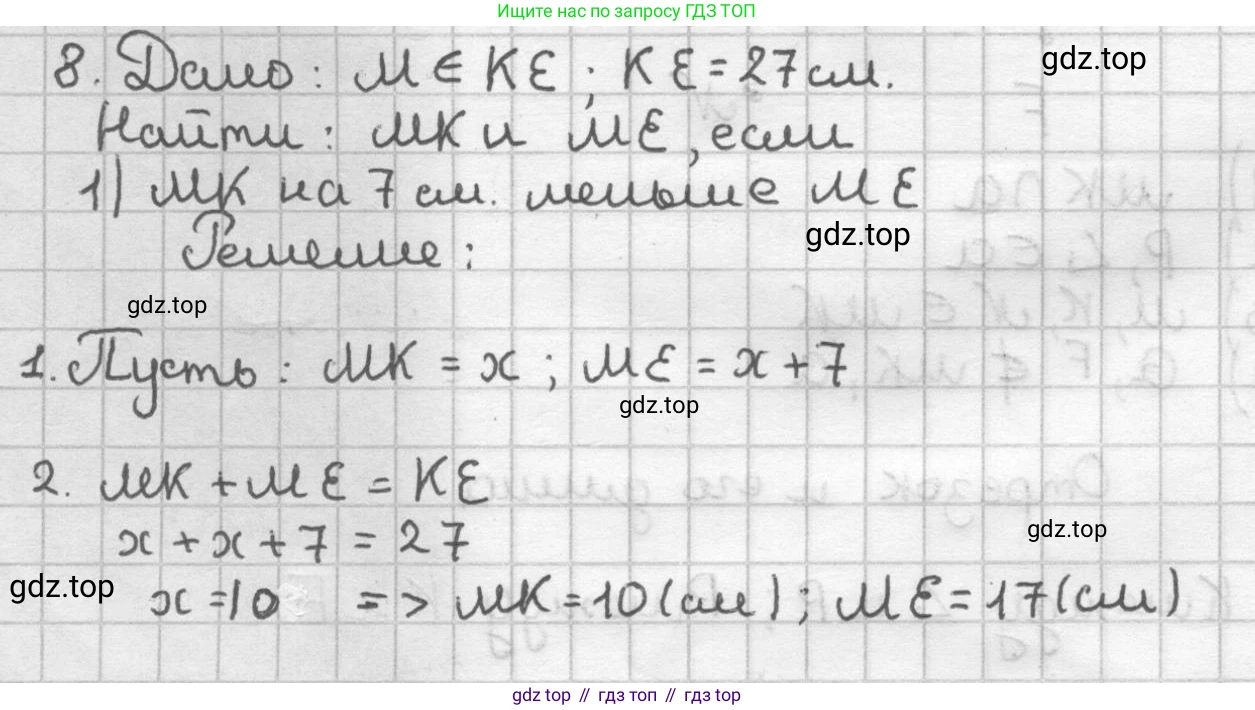 Ищите нас по запросу ГДЗ ТОП
8. Дано: M ∈ KE; KE = 27 см.
gdz.top
Найти: MK и ME, если
1) MK на 7 см. меньше ME
gdz.top
Решение:
gdz.top
1. Пусть: MK = x; ME = x + 7
gdz.top
2. MK + ME = KE
x + x + 7 = 27
gdz.top
gdz.top
x = 10 => MK = 10 (см); ME = 17 (см)
gdz.top // гдз топ // гдз top